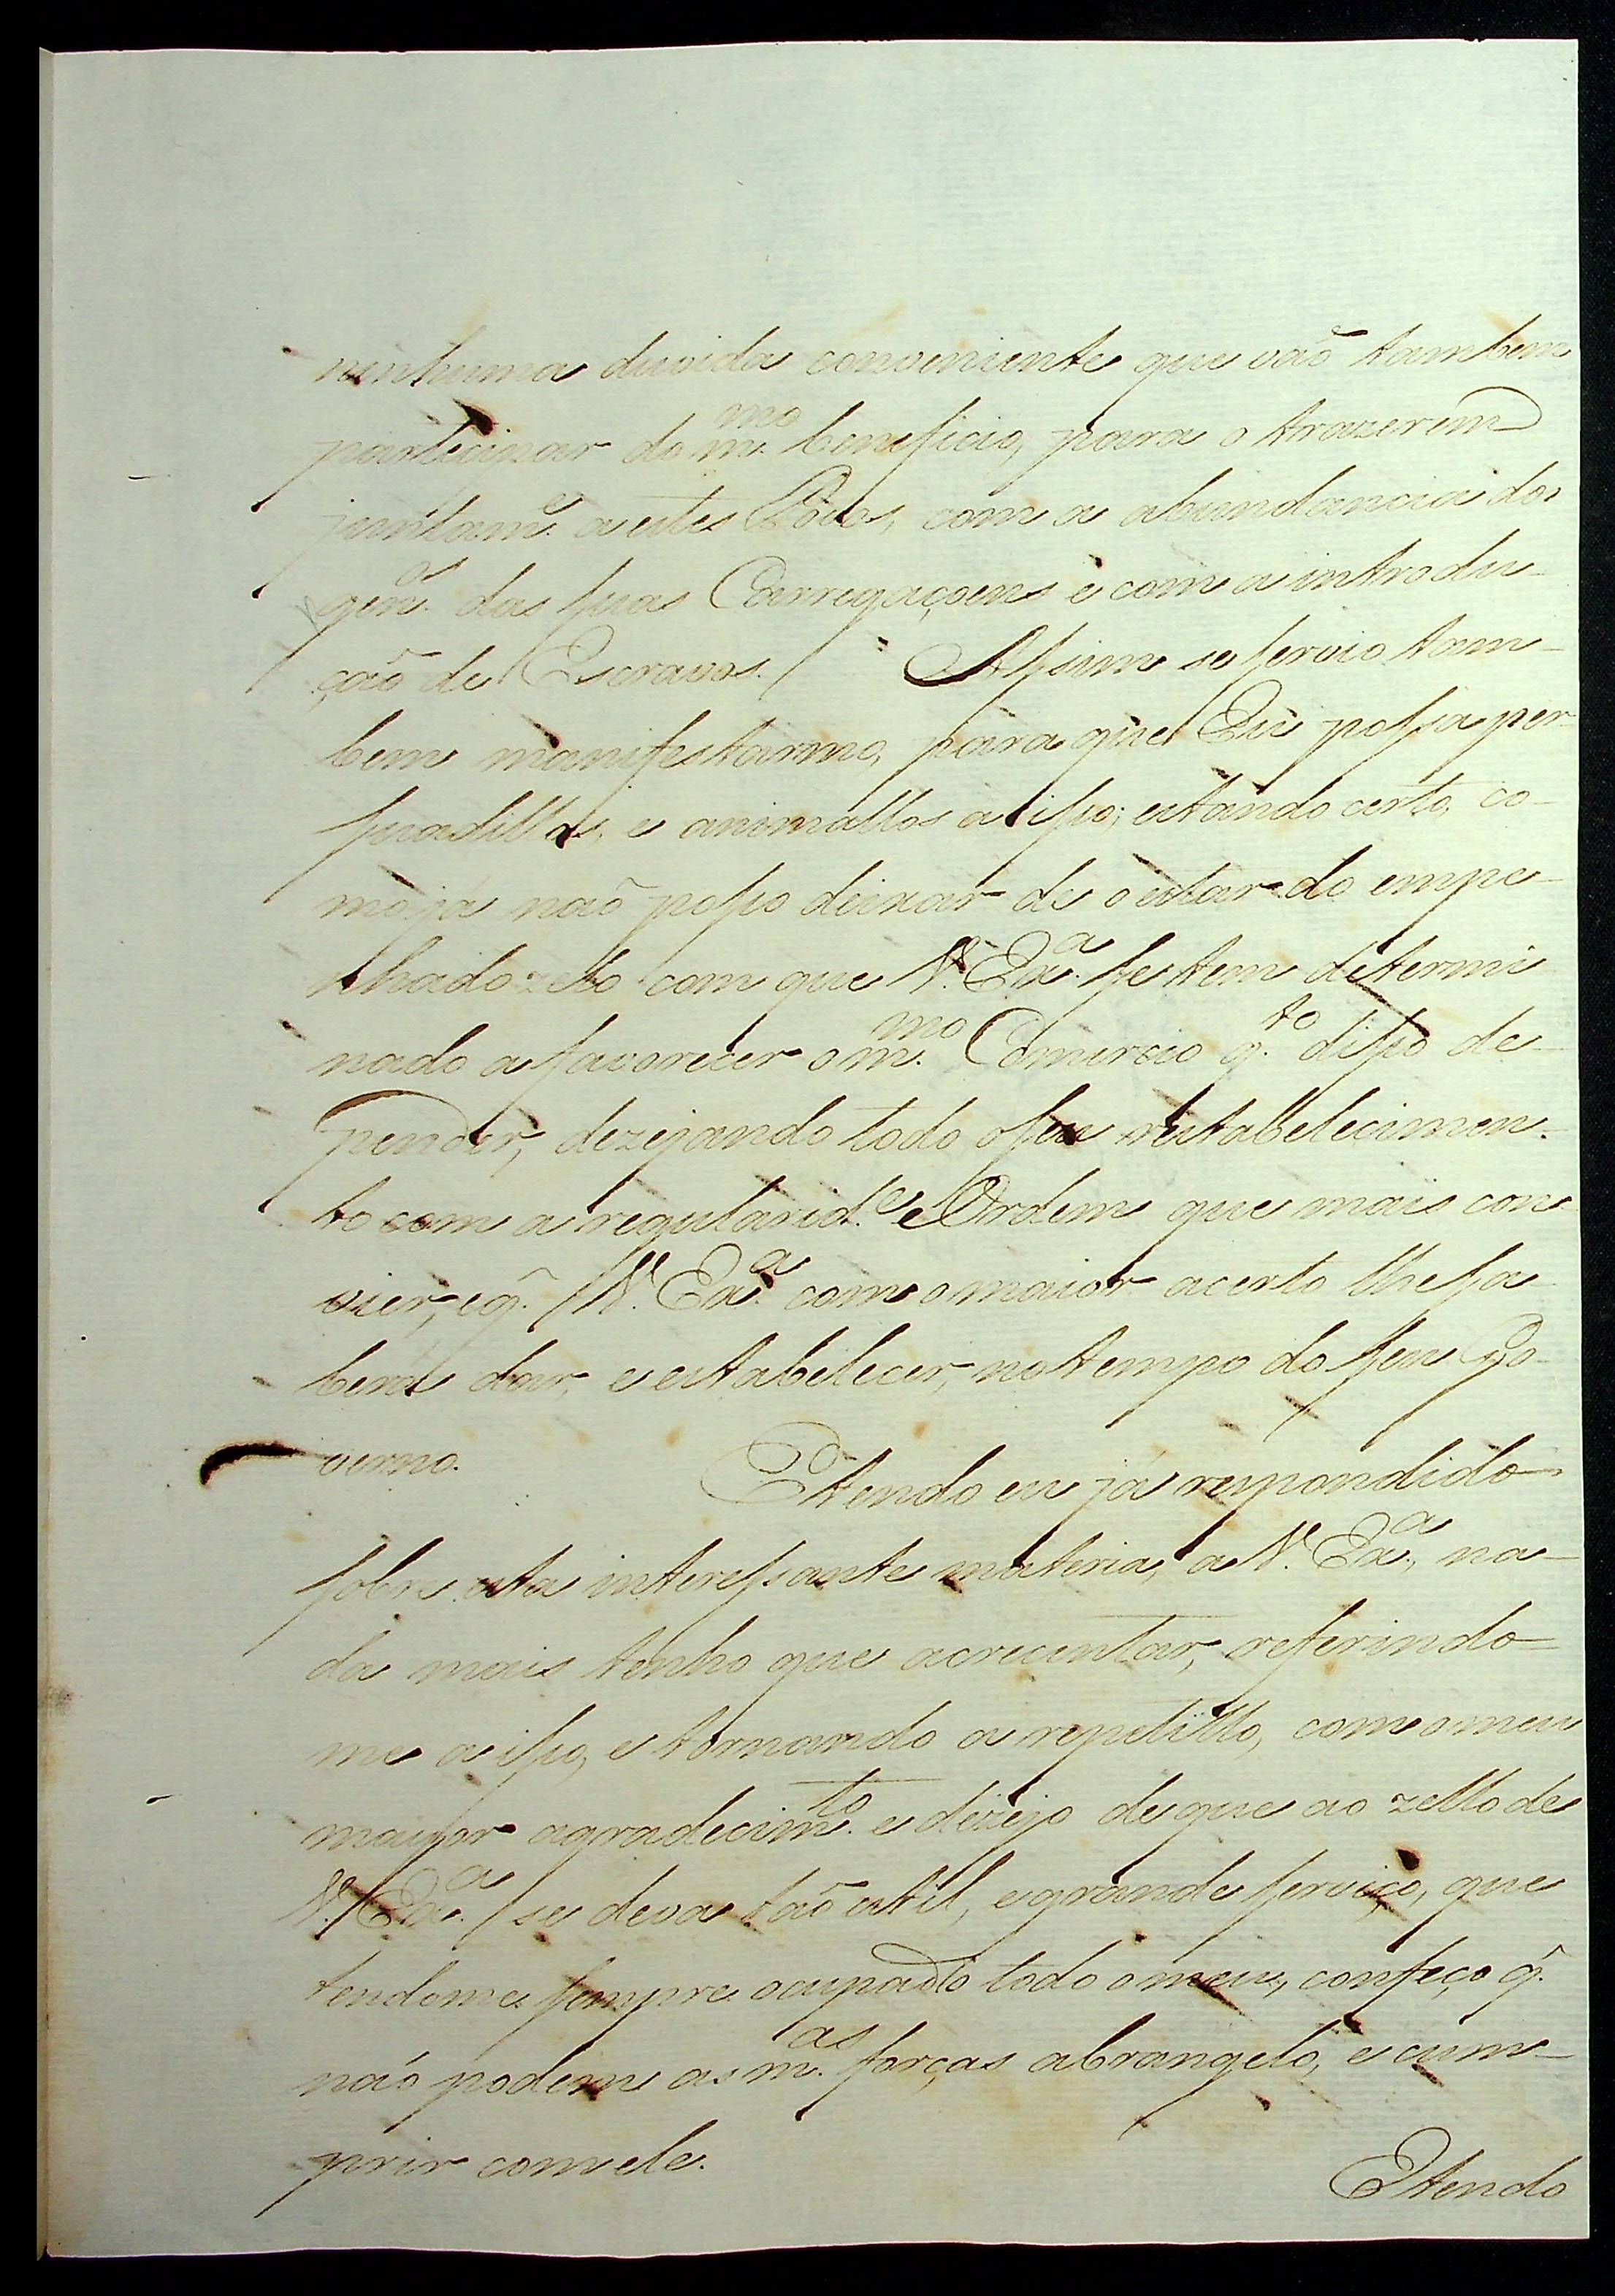 ninhuma duvida conveniente que vaõ tambem
partecipar do m.mo beneficio, para o trazerem
juntam.e a estes Povos, com a abundancia dos
gen.os das suas Carregaçoens e com a introdu-
çaõ de Escravos. Assim se servio tam-
bem manifestarmo, para que Eu possa per-
suadillos, e animallos a isso; estando certo, co-
mo já naõ posso deixar de o estar do empe-
nhado zello com que V. Ex.a se tem determi
nado a favorecer o m.mo Comercio q.to disso de-
pender, dezejando todo o seu restabelecimen-
to com a regularid.e e Ordem que mais con
vier, e q̃. V. Ex.a com o maior acerto lhe sa
berá dar, e estabelecer, no tempo do seu Go-
verno. E tendo eu já respondido
sobre esta interessante materia, a V. Ex.a, na-
da mais tenho que acrecentar, referindo-
me a isso, e tornando a repetillo, com o meu
mayor agradecim.to e dezejo de que ao zello de
V. Ex.a se deva taõ util, e grande serviço, que
tendome sempre ocupado todo o meu, confeço q̃.
náo podem as m.as forças abrangelo, e cum-
prir com ele.
E tendo